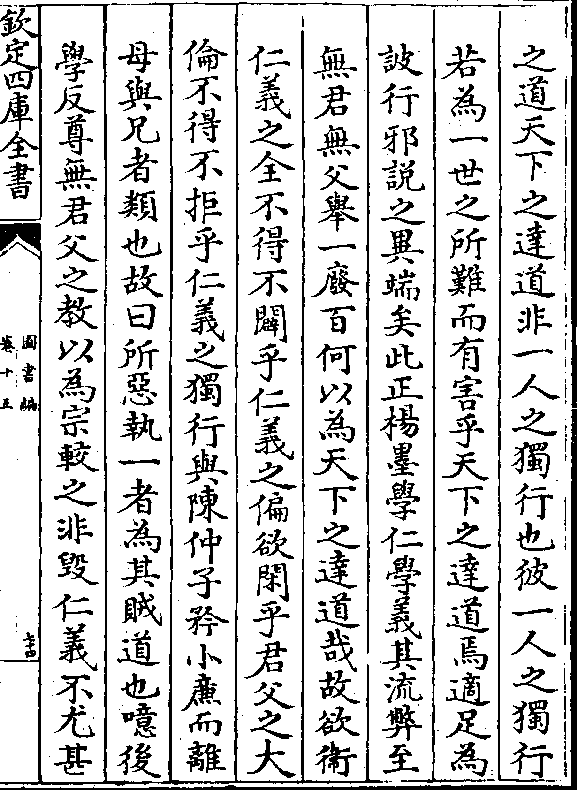 之道天下之達道非一人之獨行也彼一人之獨行
若為一世之所難而有害乎天下之達道焉適足為
詖行邪說之異端矣此正楊墨學仁學義其流弊至
無君無父舉一廢百何以為天下之達道哉故欲衛
仁義之全不得不闢乎仁義之偏欲閑乎君父之大
倫不得不拒乎仁義之獨行與陳仲子矜小㢘而離
母與兄者類也故曰所惡執一者為其賊道也噫後
學反尊無君父之教以為宗較之非毀仁義不尤甚
欽定四庫全書
圖書編
卷十五
七十四